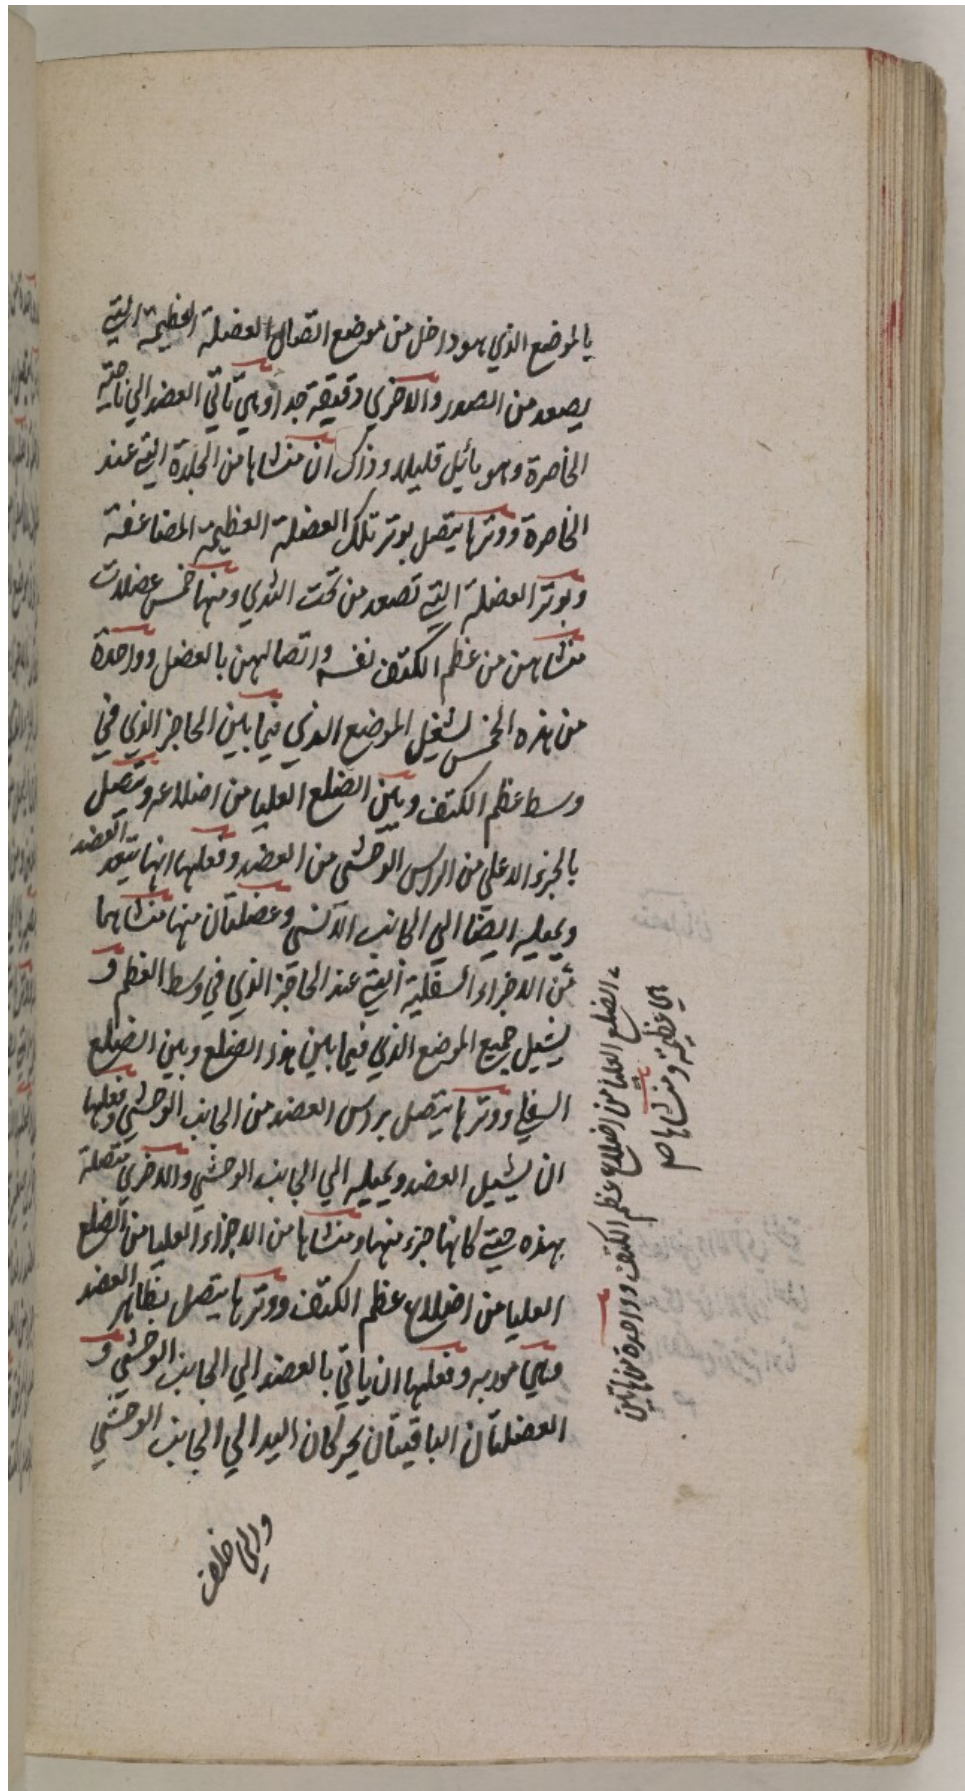 بالموضع الذي هو داخل من موضع اتصال العضلة العظيمة التي
يصعد من الصدر والاخري دقيقة جدا وهي تاتي العضد الي ناحية
الخاصرة وهو مائل قليلا وذلك ان منشاها من الجلدة التي عند
الخاصرة ووترها يتصل بوتر تلك العضلة العظيمة المضاعفة
وبوتر العضلة التي تصعد من تحت الثدي ومنها خمس عضلات
منشاهن من عظم الكتف نفسه واتصالهن بالعضل وواحدة
من هذه الخمس تشغل الموضع الذي فيما بين الحاجز الذي في
وسط عظم الكتف وبين الضلع العليا من اضلاعه ويتصل
بالجزء الاعلي من الراس الوحشي من العضد وفعلها انها تبعد العضد
ويميله ايضا الي الجانب الانسي وعضلتان منها منشاهما
من الاجزاء السفلية التي عند الحاجز الذي في وسط العظم و
يشيل جميع الموضع الذي فيما بين هذا الضلع وبين الضلع
السفلي ووترها يتصل براس العضد من الجانب الوحشي وفعلها
ان يشيل العضد ويميله الي الجانب الوحشي والاخري متصلة
بهذه حتي كانها جزء منها ومنشاها من الاجزاء العليا من الضلع
العليا من اضلاع عظم الكتف ووترها يتصل بظاهر العضد
وهي موربه وفعلها ان ياتي بالعضد الي الجانب الوحشي و
العضلتان الباقيتان يحركان اليد الي الجانب الوحشي
والي خلف
الضلع العليا من اضلاع عظم الكتف وواحدة من هاتين
هي عظيمة ومنشاها صح